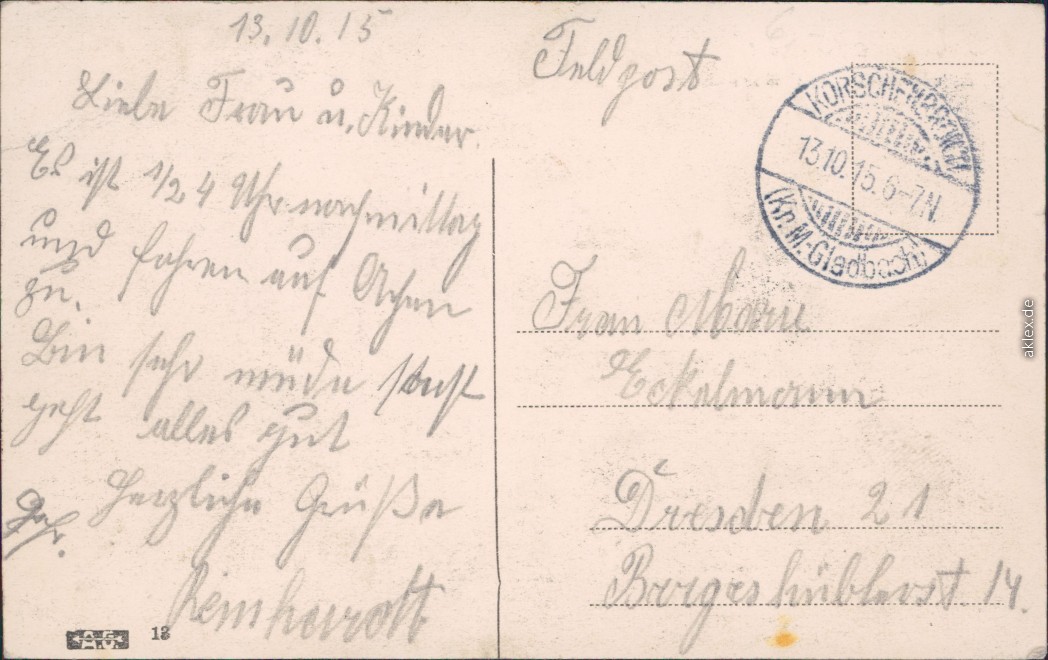 13.10.15
Liebe Frau u. Kinder.
Es ist 1/2 4 Uhr nachmittag
und fahren auf Achen
zu.
Bin sehr müde sonst
geht alles gut
Herzliche Grüße
Reinhardt
A.G. 13
Feldpost
KORSCHENBROICH
13.10.15.6-7N.
(Kr. M.-Gladbach)
Frau Marie
Eckelmann
Dresden 21
Bergeshüblerst. 14.
aklex.de